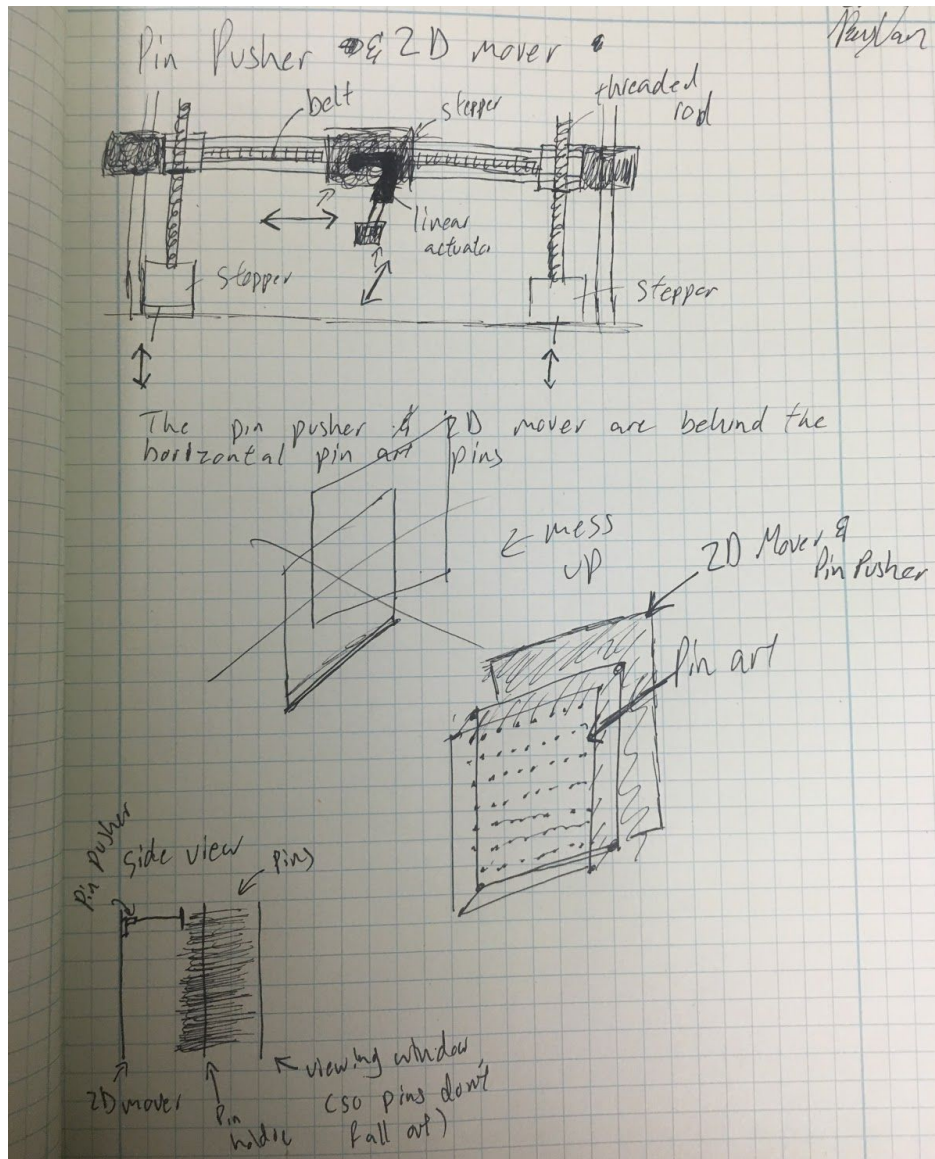 Pin Pusher & 2D mover
belt
stepper
threaded
rod
linear
actuator
stepper
stepper
The pin pusher & 2D mover are behind the
horizontal pin art pins
← mess
up
2D Mover &
Pin Pusher
Pin art
Pin Pusher
side view
pins
2D mover
Pin
holder
viewing window
(so pins don't
fall out)